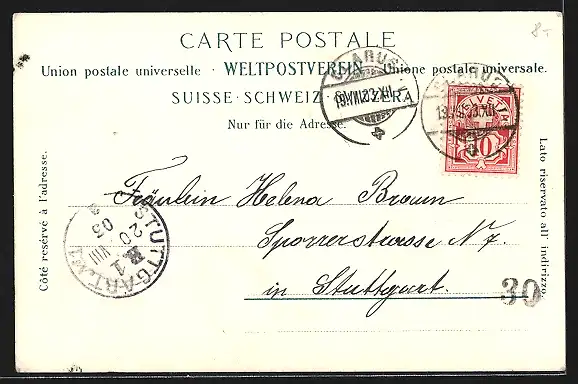 8.-
CARTE POSTALE
Union postale universelle · WELTPOSTVEREIN · Unione postale universale.
SUISSE · SCHWEIZ · SVIZZERA
Nur für die Adresse.
GLARUS
19.VIII.03.XII
4
GLARUS
19.VIII.03.XII
4
HELVETIA
10
Côté resérvé à l'adresse.
Lato riservato all' indirizzo.
Fräulein Helena Braun
Sporrerstrasse N 7.
in Stuttgart.
STUTTGART
20 VIII 03
1
30